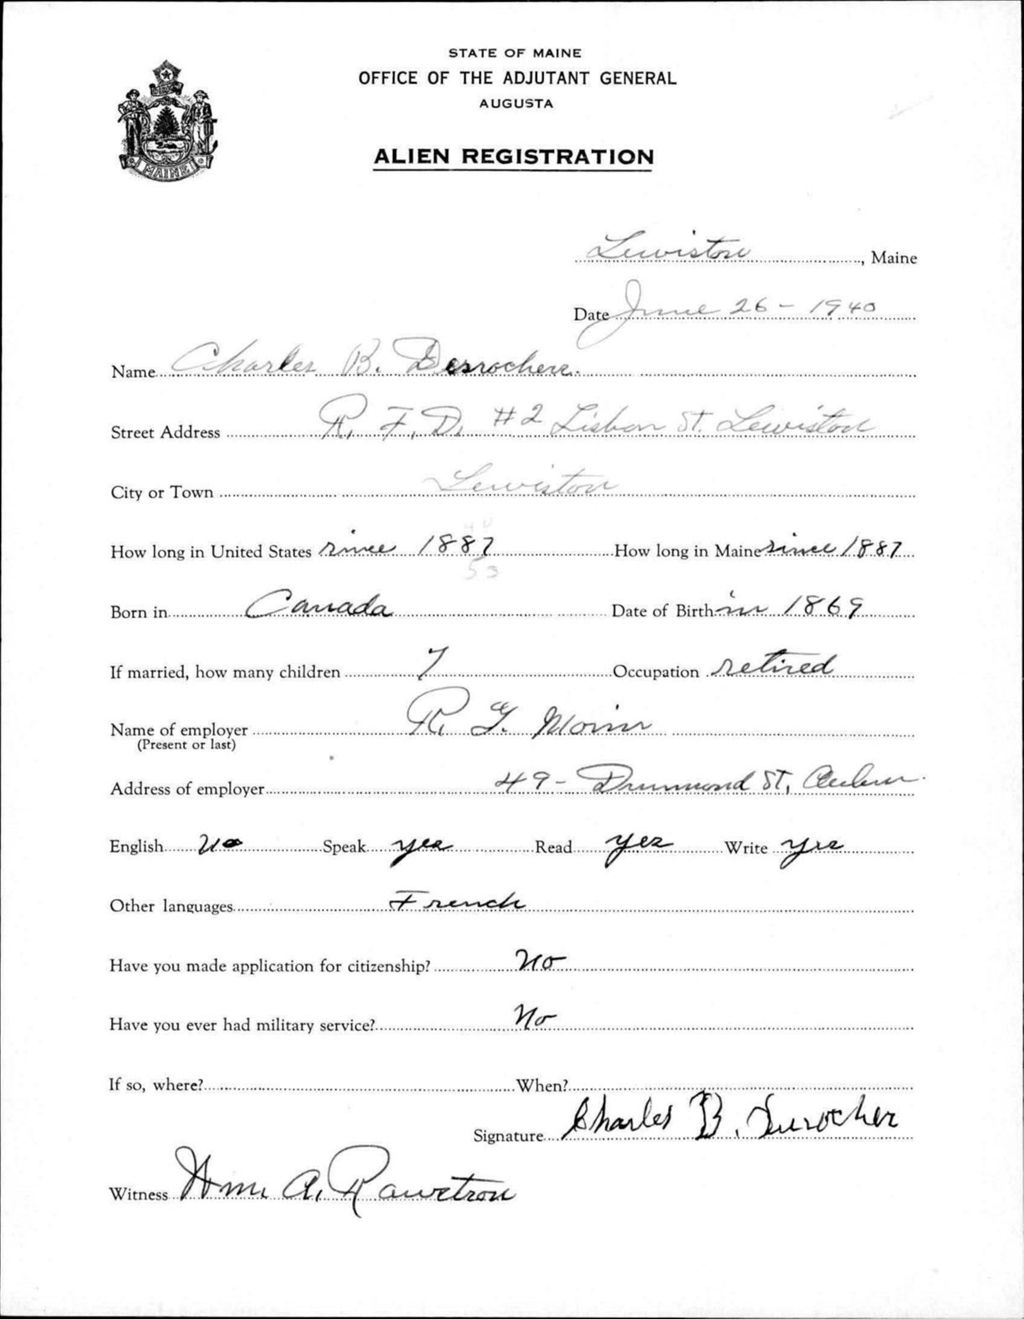 STATE OF MAINE
OFFICE OF THE ADJUTANT GENERAL
AUGUSTA
MAINE
ALIEN REGISTRATION
Lewiston, Maine
Date June 26 - 1940
Name Charles B. Desrochers.
Street Address R. F. D. #2 Lisbon St. Lewiston
City or Town Lewiston
How long in United States since 1887 How long in Maine since 1887
53
Born in Canada Date of Birth in 1869
If married, how many children 7 Occupation retired
Name of employer R. G. Morin
(Present or last)
Address of employer 49 - Drummond St, Auburn.
English No Speak yes Read yes Write yes
Other languages French
Have you made application for citizenship? No
Have you ever had military service? No
If so, where? When?
Signature Charles B. Desrocher
Witness Wm. A.